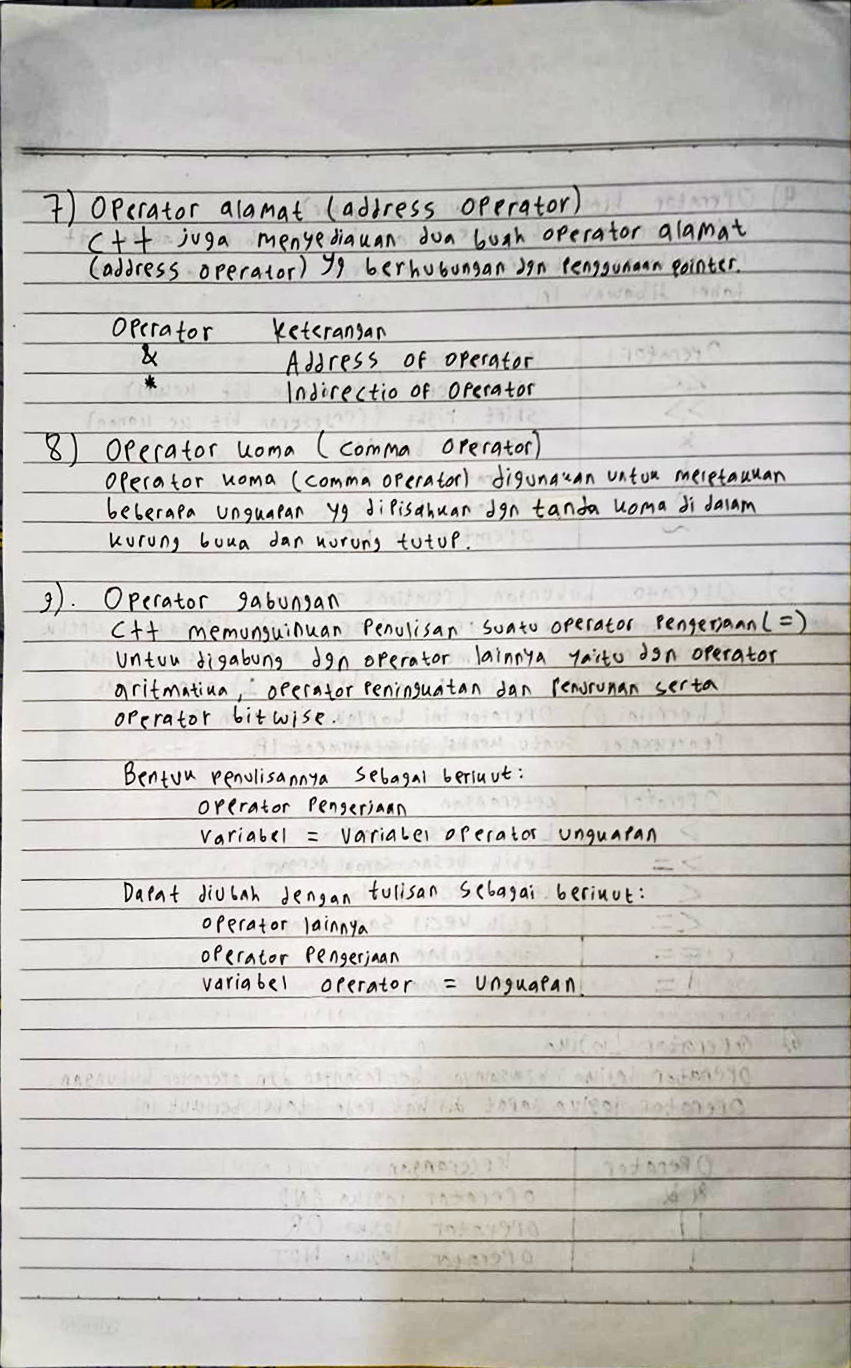 7) Operator alamat (address operator)
C++ juga menyediakan dua buah operator alamat
(address operator) yg berhubungan dgn penggunaan pointer.
Operator Keterangan
& Address of operator
* Indirectio of operator
8) Operator koma (comma operator)
Operator koma (comma operator) digunakan untuk meletakkan
beberapa ungkapan yg dipisahkan dgn tanda koma di dalam
kurung buka dan kurung tutup.
9). Operator gabungan
C++ memungkinkan penulisan suatu operator pengerjaan (=)
untuk digabung dgn operator lainnya yaitu dgn operator
aritmatika, operator peningkatan dan penurunan serta
operator bitwise.
Bentuk penulisannya sebagai berikut:
operator pengerjaan
variabel = variabel operator ungkapan
Dapat diubah dengan tulisan sebagai berikut:
operator lainnya
operator pengerjaan
variabel operator = ungkapan.